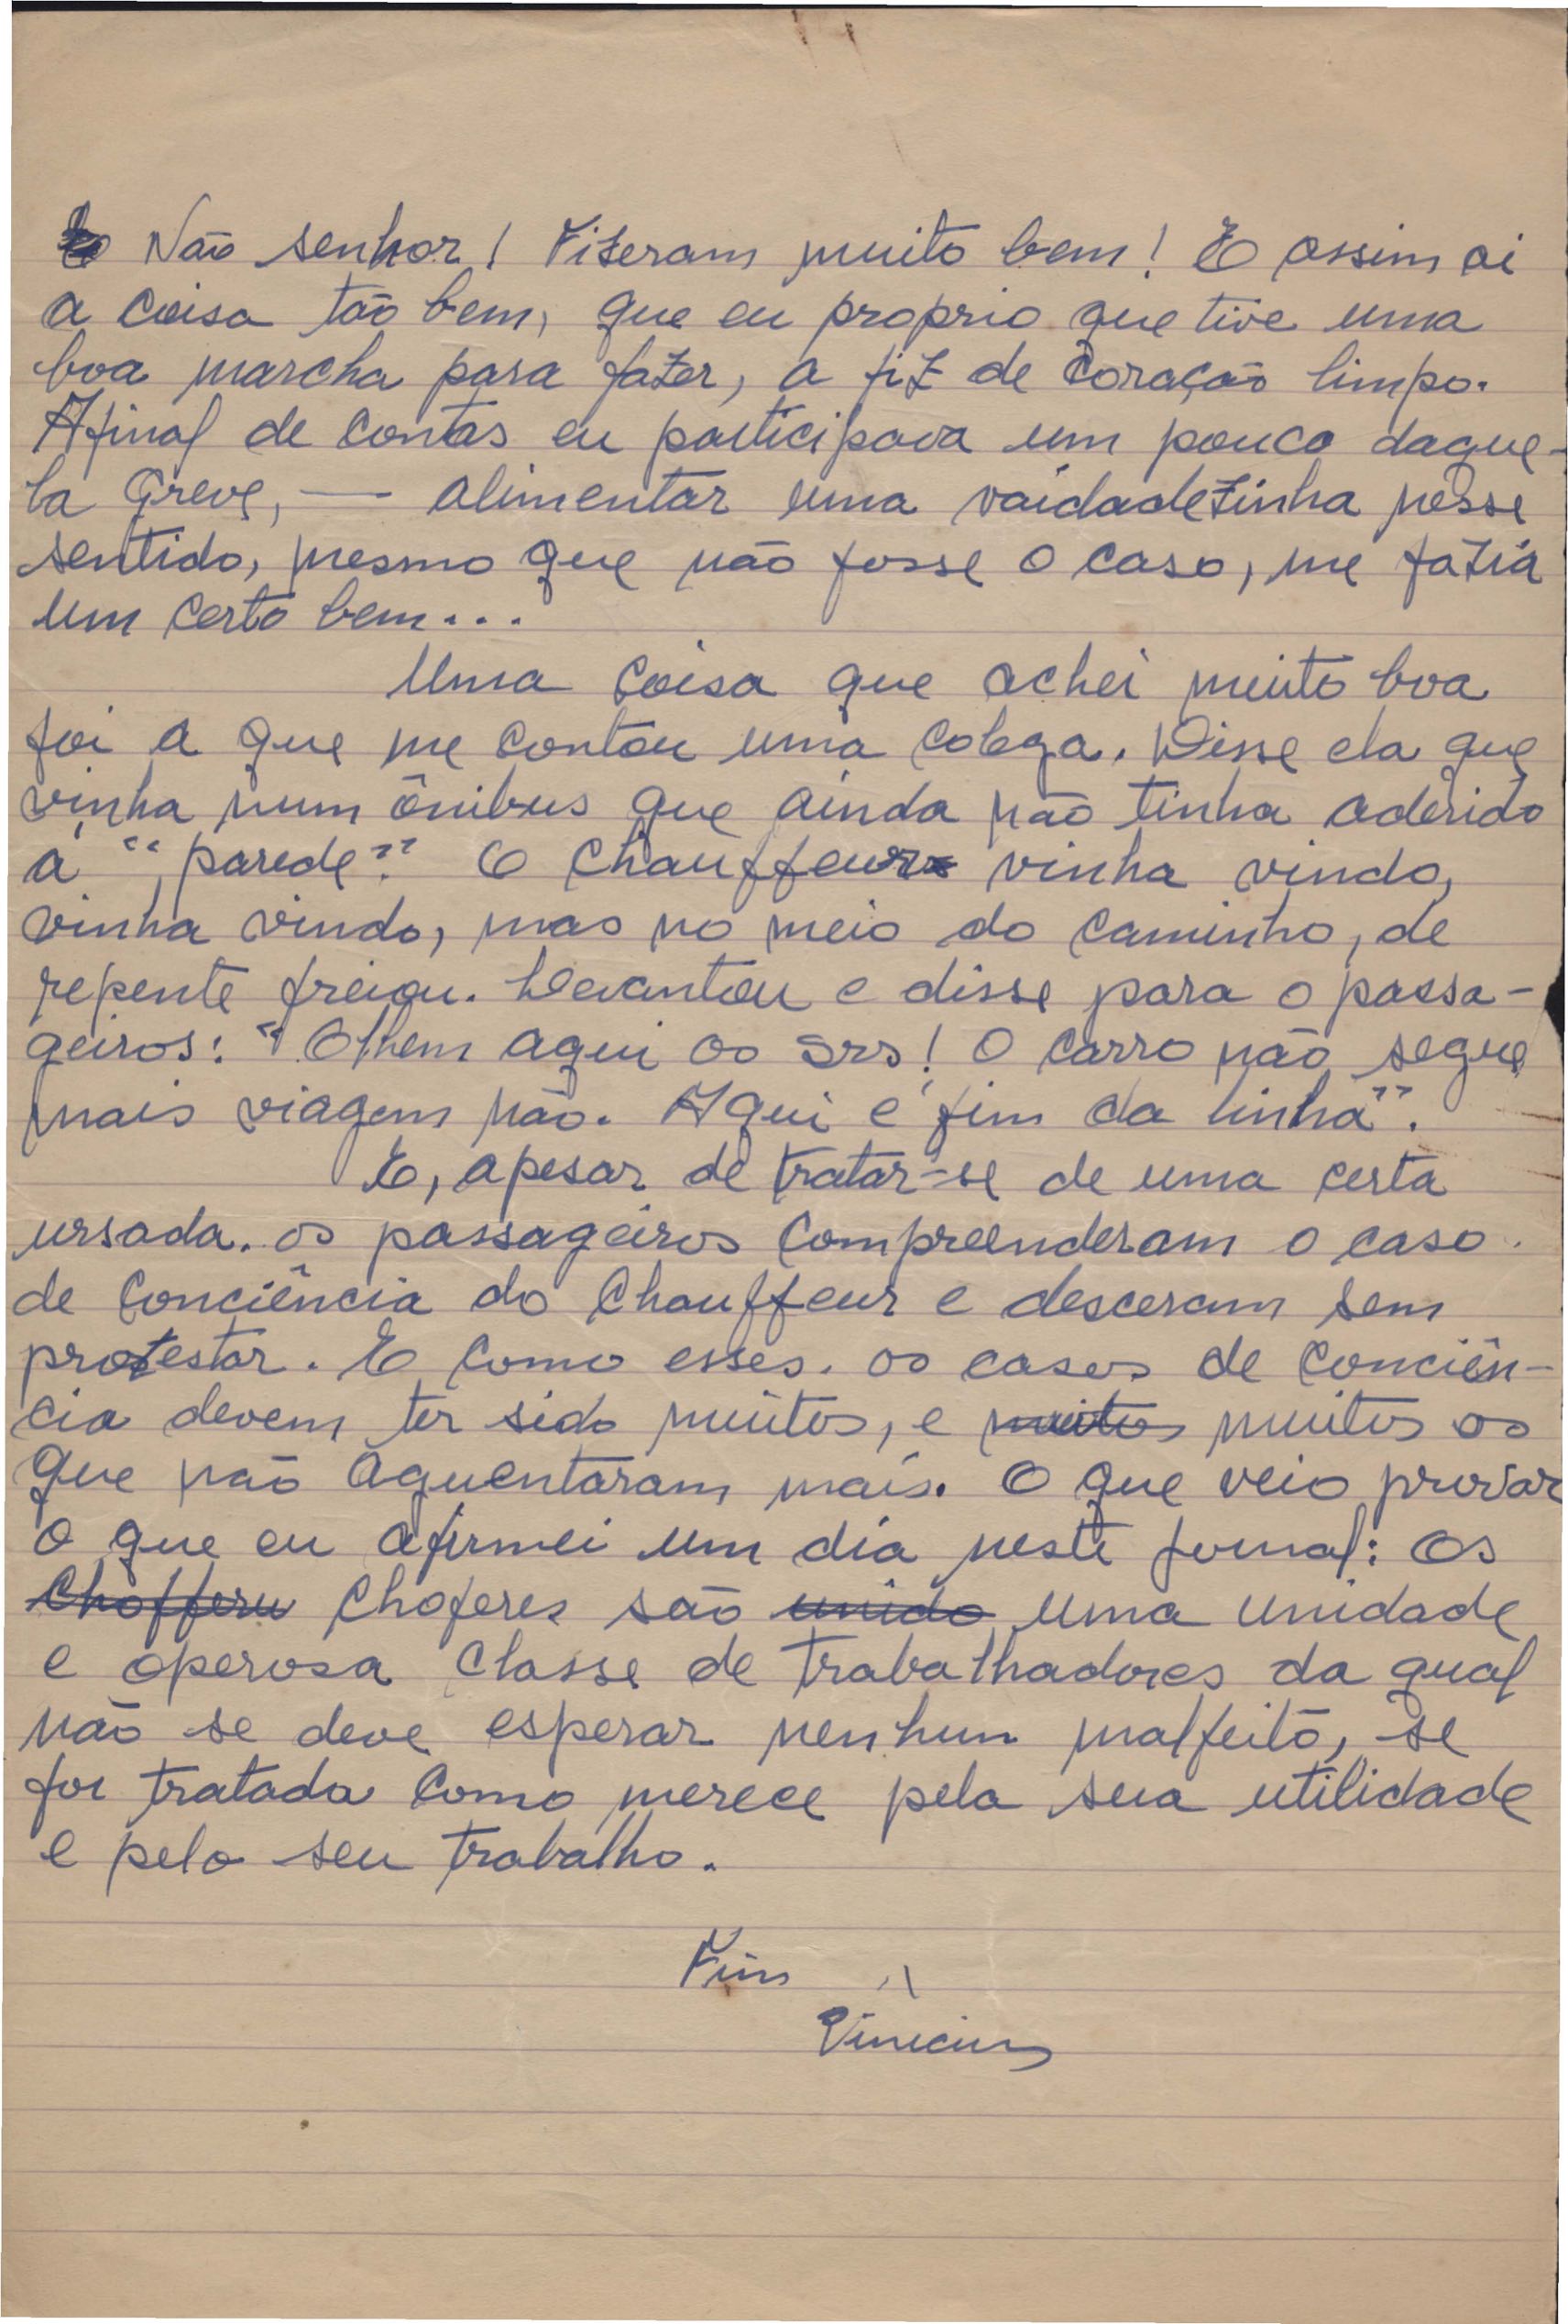 Não senhor! Fizeram muito bem! E assim oi
a coisa tão bem, que eu proprio que tive uma
boa marcha para fazer, a fiz de coração limpo.
Afinal de contas eu participava um pouco daque-
la Greve, — alimentar uma vaidadezinha nesse
sentido, mesmo que não fosse o caso, me fazia
um certo bem...
Uma coisa que achei muito boa
foi a que me contou uma colega. Disse ela que
vinha num ônibus que ainda não tinha aderido
à "parede". O chauffeur vinha vindo,
vinha vindo, mas no meio do caminho, de
repente freiou. Levantou e disse para o passa-
geiros: "Olhem aqui os srs! O carro não segue
mais viagem não. Aqui é fim da linha".
E, apesar de tratar-se de uma certa
ursada. os passageiros compreenderam o caso
de conciência do chauffeur e desceram sem
protestar. E como esses. os casos de conciên-
cia devem ter sido muitos, e muitos muitos os
que não aguentaram mais. O que veio provar
o que eu afirmei um dia neste jornal: Os
choferes são unido uma unidade
e operosa classe de trabalhadores da qual
não se deve esperar nenhum malfeito, se
for tratada como merece pela sua utilidade
e pelo seu trabalho.
Fim
Vinicius